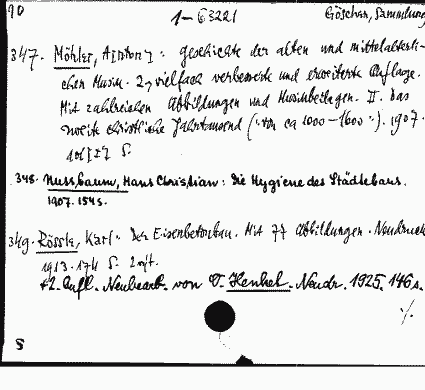 90 1-63221 Göschen, Sammlung
347. Möhler, A[nton]: Geschichte der alten und mittelalterli-
chen Musik. 2., vielfach verbesserte und erweiterte Auflage.
Mit zahlreichen Abbildungen und Musikbeilagen. II. Das
zweite christliche Jahrtausend (: von ca 1000-1600 :). 1907.
S.
348. Nussbaum, Hans Christian: Die Hygiene des Städtebaus.
1907. 154 S.
349. Rössle, Karl: Der Eisenbetonbau. Mit 77 Abbildungen. Neudruck
1913. 174 S.
+2. Aufl. Neubearb. von O. Henkel. Neudr. 1925. 146 S.
./.
S